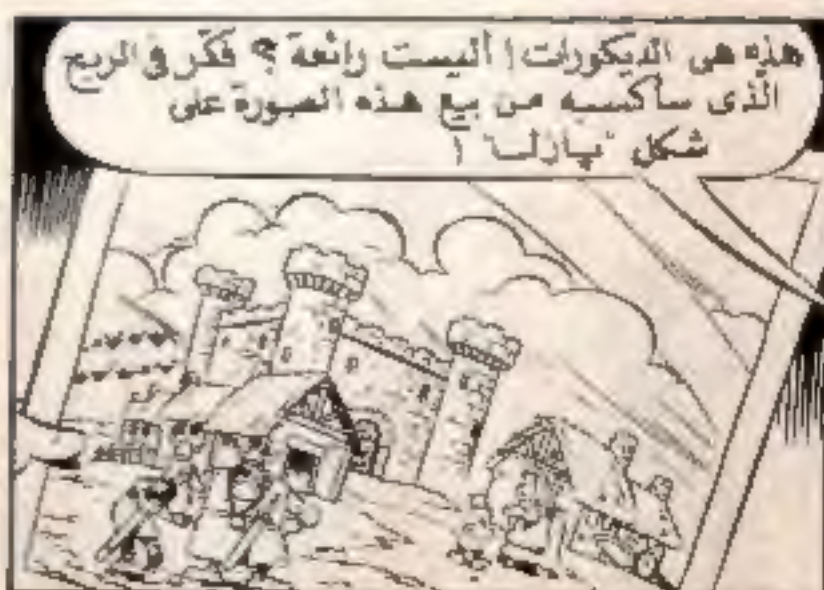 هذه هى الديكورات ! أليست رائعة ؟ فكّر فى الربح
الذى سأكسبه من بيع هذه الصورة على
شكل "پازل" !